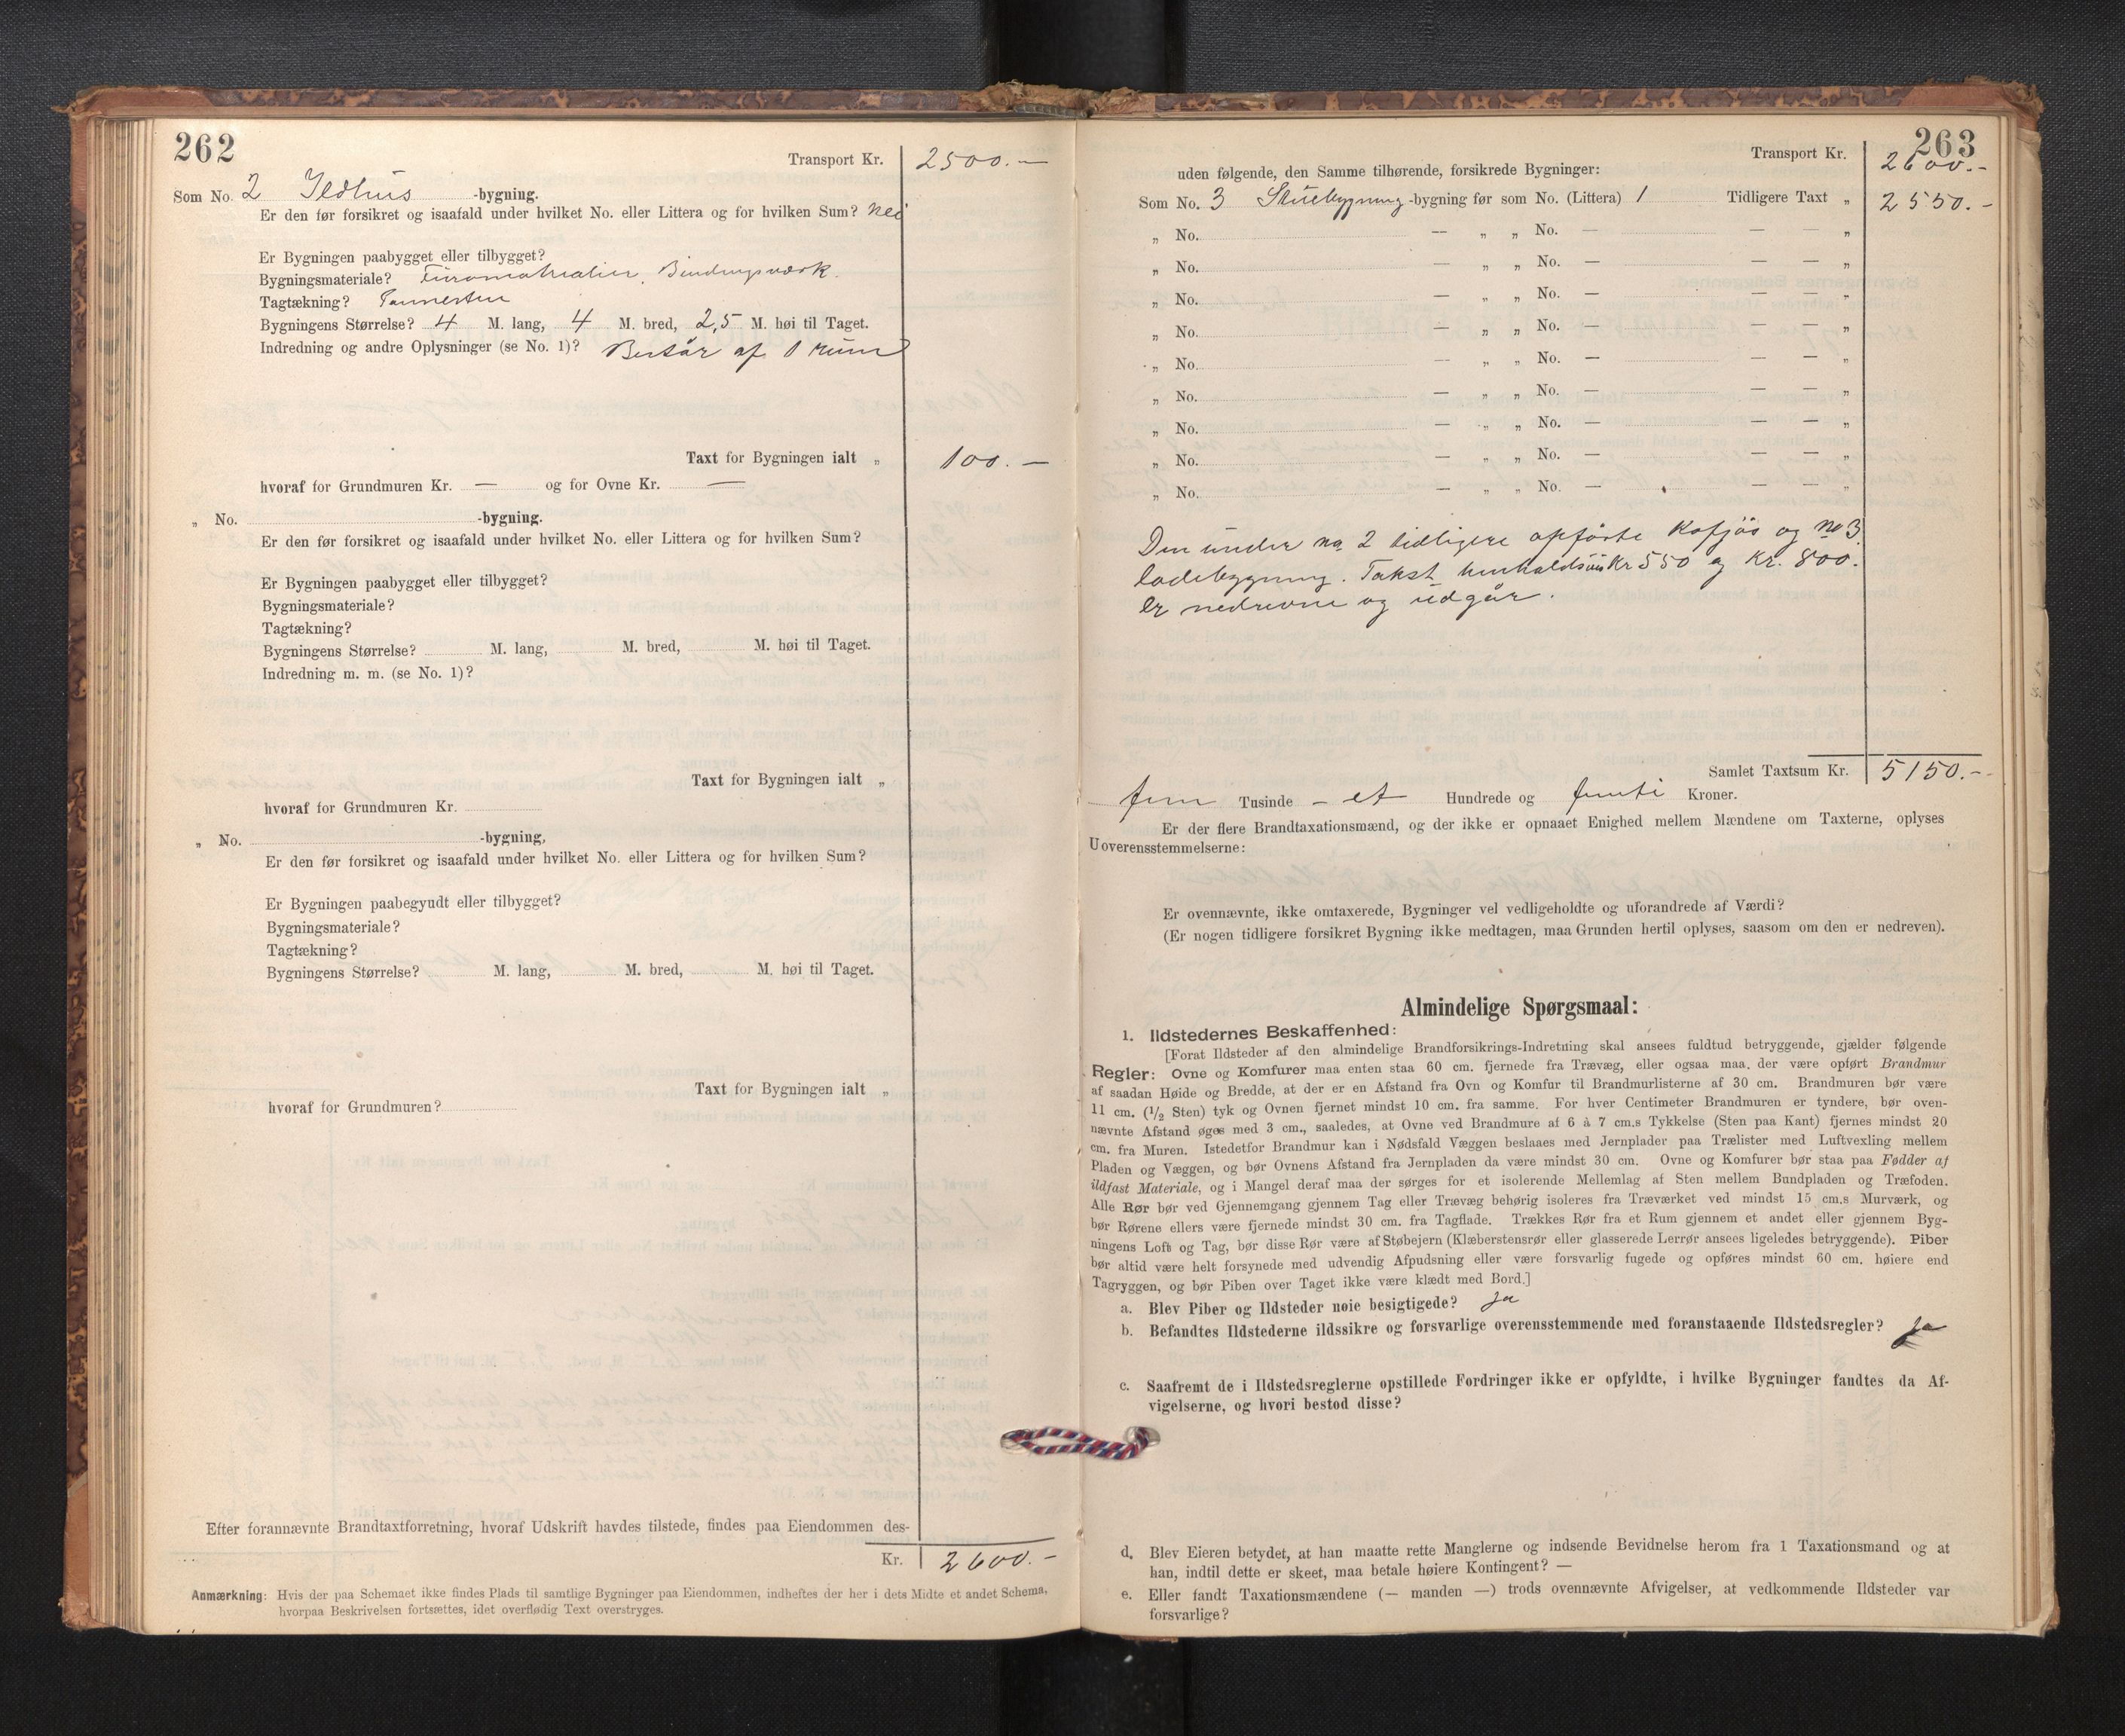 262
Transport Kr. 2500.—
Som No. 2 Ildhus -bygning.
Er den før forsikret og isaafald under hvilket No. eller Littera og for hvilken Sum? nei
Er Bygningen paabygget eller tilbygget?
Bygningsmateriale? Furumatrialier, Bindingsverk.
Tagtækning? Pannesten
Bygningens Størrelse? 4 M. lang, 4 M. bred, 2,5 M. høi til Taget.
Indredning og andre Oplysninger (se No. 1)? Består af 1 rum
Taxt for Bygningen ialt „ 100.—
hvoraf for Grundmuren Kr. — og for Ovne Kr. —
„ No. -bygning.
Er den før forsikret og isaafald under hvilket No. eller Littera og for hvilken Sum?
Er Bygningen paabygget eller tilbygget?
Bygningsmateriale?
Tagtækning?
Bygningens Størrelse? M. lang, M. bred, M. høi til Taget.
Indredning m. m. (se No. 1)?
Taxt for Bygningen ialt „
hvoraf for Grundmuren Kr.
„ No. -bygning,
Er den før forsikret og isaafald under hvilket No. eller Littera og for hvilken Sum?
Er Bygningen paabegyndt eller tilbygget?
Bygningsmateriale?
Tagtækning?
Bygningens Størrelse? M. lang, M. bred, M. høi til Taget.
Taxt for Bygningen ialt „
hvoraf for Grundmuren?
Efter forannævnte Brandtaxtforretning, hvoraf Udskrift havdes tilstede, findes paa Eiendommen des-
Kr. 2600.—
Anmærkning: Hvis der paa Schemaet ikke findes Plads til samtlige Bygninger paa Eiendommen, indheftes der her i dets Midte et andet Schema,
hvorpaa Beskrivelsen fortsættes, idet overflødig Text overstryges.
263
Transport Kr. 2600.—
uden følgende, den Samme tilhørende, forsikrede Bygninger:
Som No. 3 Stuebygning -bygning før som No. (Littera) 1 Tidligere Taxt „ 2550.—
„ No. — „ „ No. — — — „
„ No. — „ „ No. — — — „
„ No. — „ „ No. — — — „
„ No. — „ „ No. — — — „
„ No. — „ „ No. — — — „
„ No. — „ „ No. — — — „
„ No. — „ „ No. — — — „
„ No. — „ „ No. — — — „
„ No. — „ „ No. — — — „
Den under no 2 tidligere opførte Kofjøs og no 3
ladebygning. Takst henholdsvis Kr 550 og Kr. 800.
er nedrevne og udgår.
Samlet Taxtsum Kr. 5150.—
fem Tusinde — et Hundrede og femti Kroner.
Er der flere Brandtaxationsmænd, og der ikke er opnaaet Enighed mellem Mændene om Taxterne, oplyses
Uoverensstemmelserne:
Er ovennævnte, ikke omtaxerede, Bygninger vel vedligeholdte og uforandrede af Værdi?
(Er nogen tidligere forsikret Bygning ikke medtagen, maa Grunden hertil oplyses, saasom om den er nedreven).
Almindelige Spørgsmaal:
1. Ildstedernes Beskaffenhed:
[Forat Ildsteder af den almindelige Brandforsikrings-Indretning skal ansees fuldtud betryggende, gjælder følgende
Regler: Ovne og Komfurer maa enten staa 60 cm. fjernede fra Trævæg, eller ogsaa maa. der være opført Brandmur
af saadan Høide og Bredde, at der er en Afstand fra Ovn og Komfur til Brandmurlisterne af 30 cm. Brandmuren bør være
11 cm. (1/2 Sten) tyk og Ovnen fjernet mindst 10 cm. fra samme. For hver Centimeter Brandmuren er tyndere, bør oven-
nævnte Afstand øges med 3 cm., saaledes, at Ovne ved Brandmure af 6 à 7 cm.s Tykkelse (Sten paa Kant) fjernes mindst 20
cm. fra Muren. Istedetfor Brandmur kan i Nødsfald Væggen beslaaes med Jernplader paa Trælister med Luftvexling mellem
Pladen og Væggen, og bør Ovnens Afstand fra Jernpladen da være mindst 30 cm. Ovne og Komfurer bør staa paa Fødder af
ildfast Materiale, og i Mangel deraf maa der sørges for et isolerende Mellemlag af Sten mellem Bundpladen og Træfoden.
Alle Rør bør ved Gjennemgang gjennem Tag eller Trævæg behørig isoleres fra Træværket ved mindst 15 cm.s Murværk, og
bør Rørene ellers være fjernede mindst 30 cm. fra Tagflade. Trækkes Rør fra et Rum gjennem et andet eller gjennem Byg-
ningens Loft og Tag, bør disse Rør være af Støbejern (Klæberstensrør eller glasserede Lerrør ansees ligeledes betryggende). Piber
bør altid være helt forsynede med udvendig Afpudsning eller være forsvarlig fugede og opføres mindst 60 cm. høiere end
Tagryggen, og bør Piben over Taget ikke være klædt med Bord.]
a. Blev Piber og Ildsteder nøie besigtigede? Ja
b. Befandtes Ildstederne ildssikre og forsvarlige overensstemmende med foranstaaende Ildstedsregler? Ja
c. Saafremt de i Ildstedsreglerne opstillede Fordringer ikke er opfyldte, i hvilke Bygninger fandtes da Af-
vigelserne, og hvori bestod disse?
d. Blev Eieren betydet, at han maatte rette Manglerne og indsende Bevidnelse herom fra 1 Taxationsmand og at
han, indtil dette er skeet, maa betale høiere Kontingent? —
e. Eller fandt Taxationsmændene (— manden —) trods ovennævnte Afvigelser, at vedkommende Ildsteder var
forsvarlige?